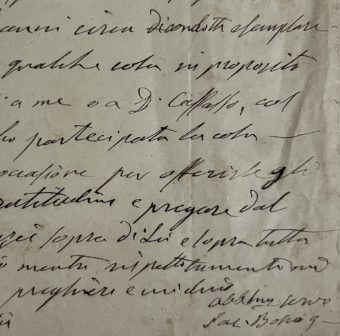 anni circa di condotta esemplare
qualche cosa in proposito
a me o a D. Caffasso, col
partecipata la cosa —
occasione per offerirle gli
gratitudine e pregare dal
sopra di Lei e sopra tutta
mentre rispettosamente
preghiere e mi dico
obblmo servo
Sac. Bosco